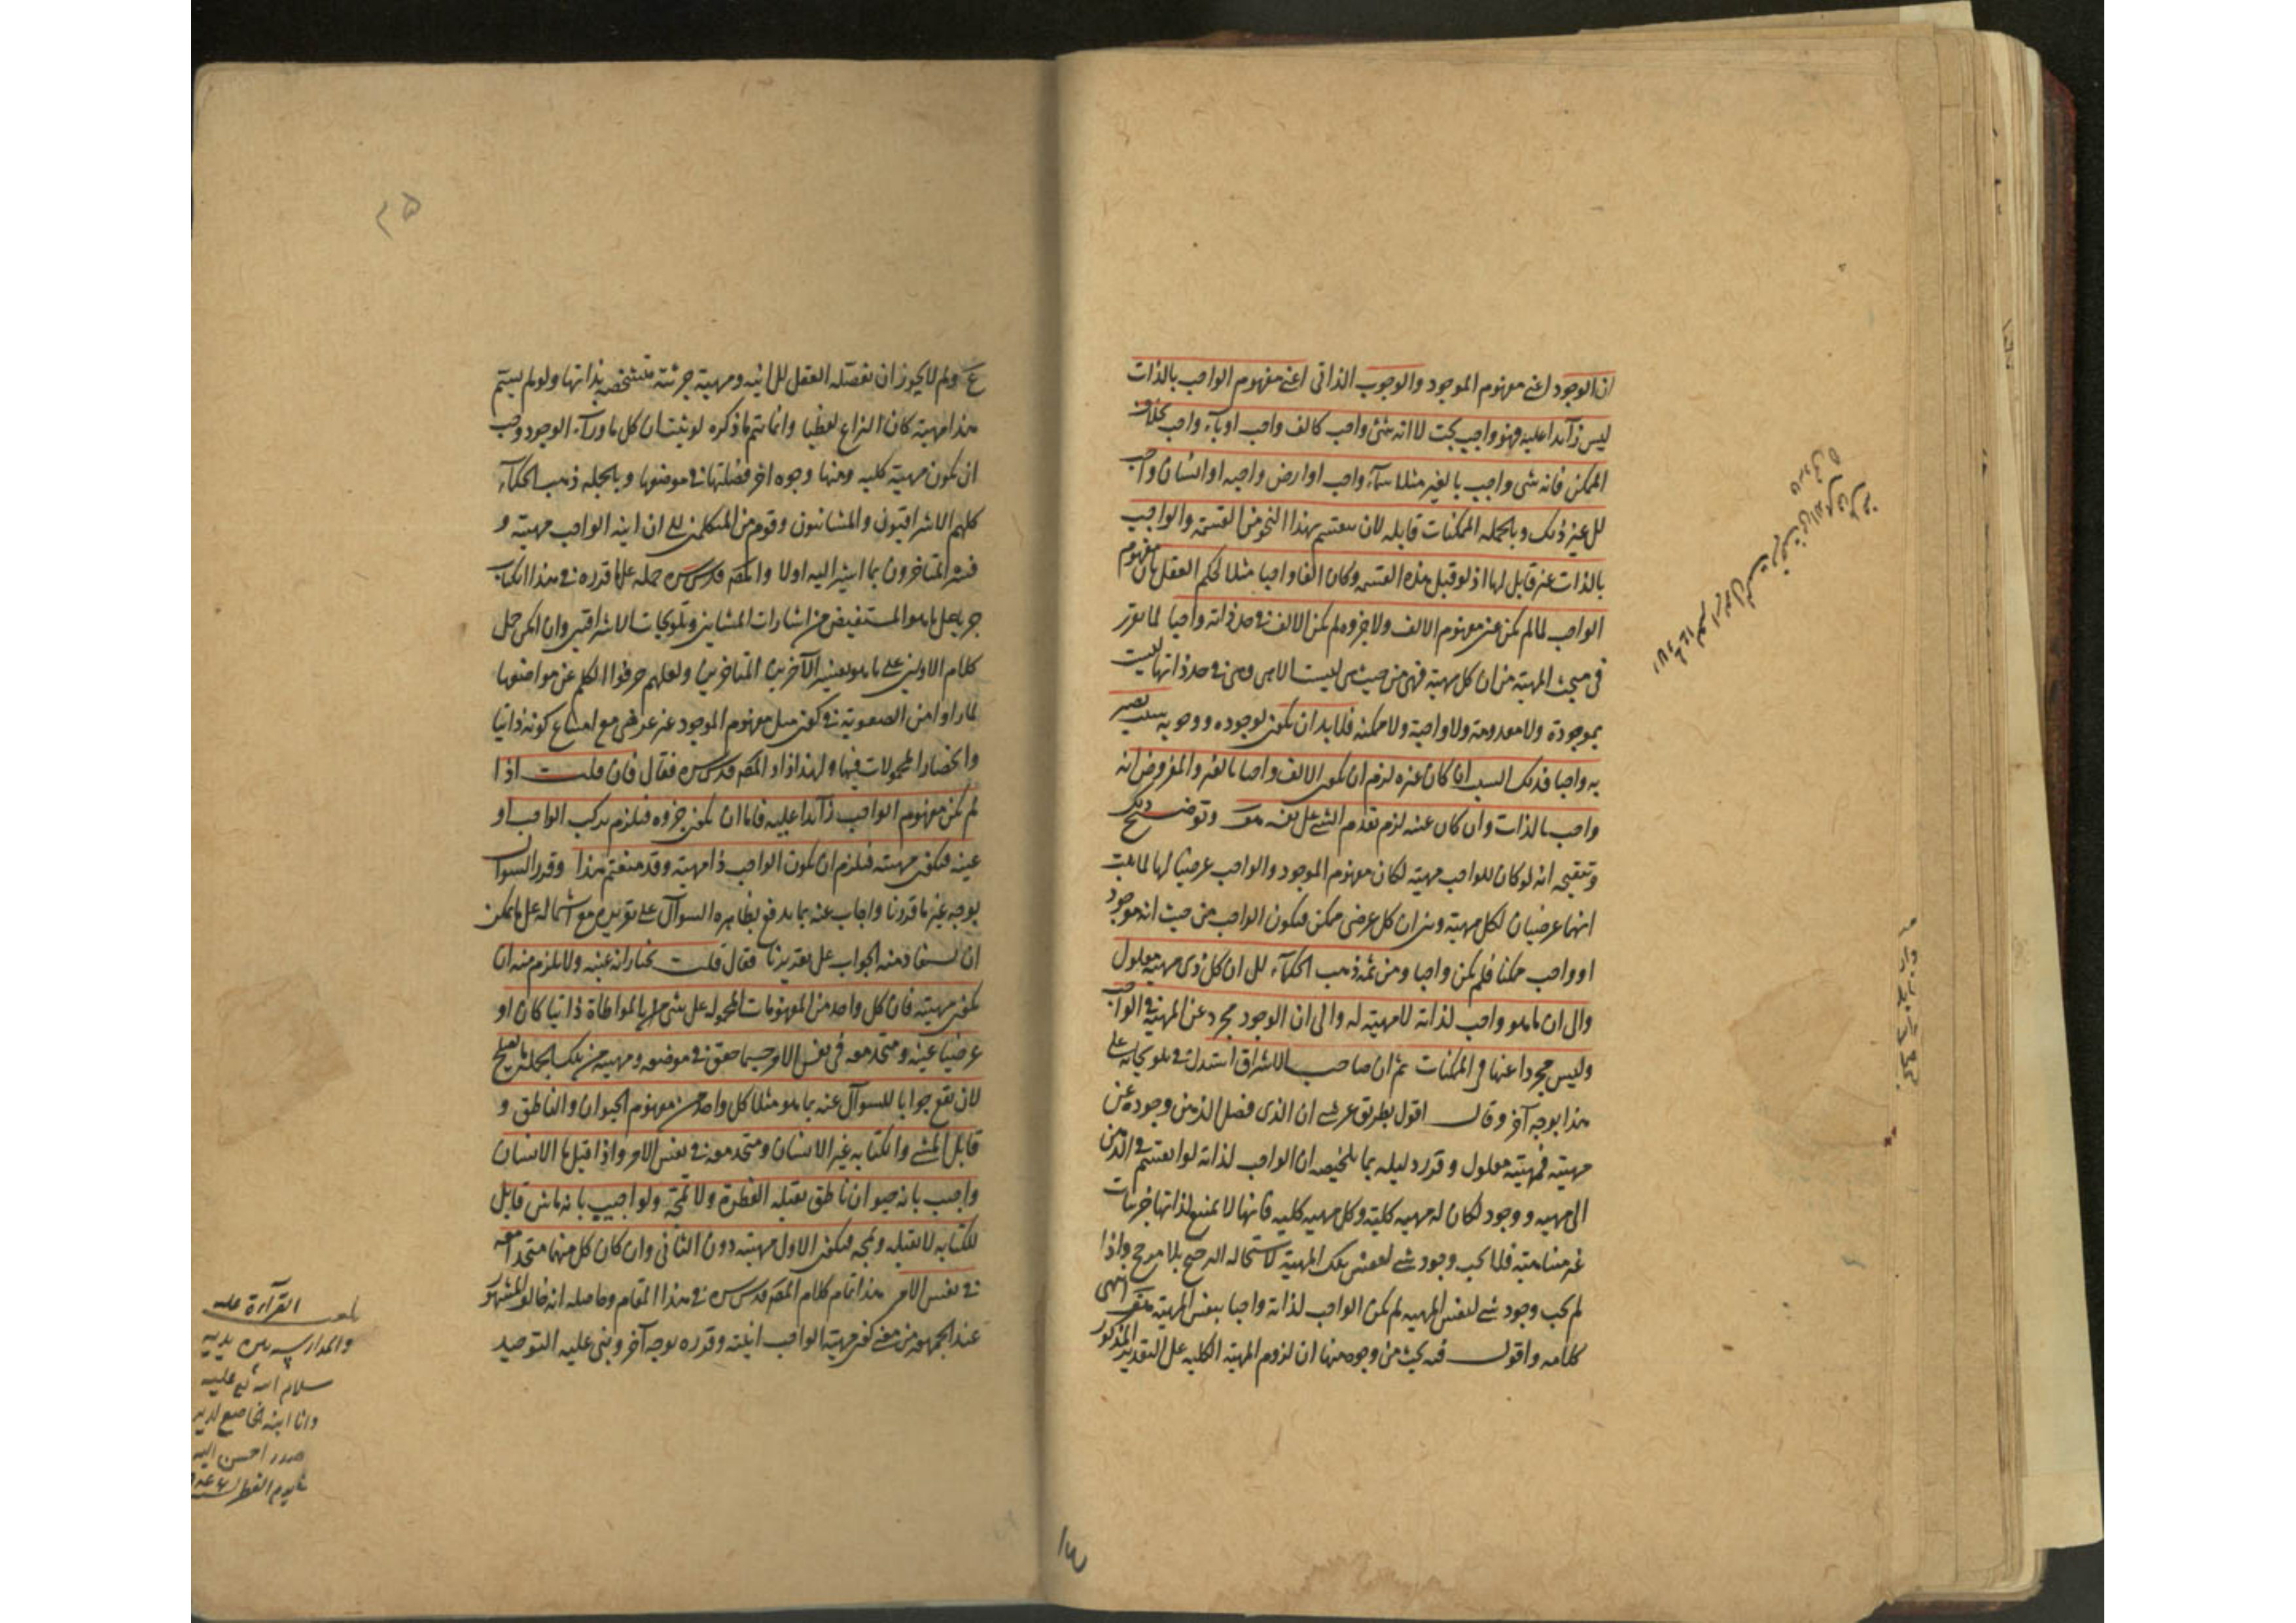 ان الوجود اعنى مفهوم الموجود والوجوب الذاتى اعنى مفهوم الواجب بالذات
ليس زآئدا عليه فهو واجب بحت لا انه شئ واجب كالف واجب او باء واجب بخلاف
الممكن فانه شى واجب بالغير مثلا سمآء واجب او ارض واجبه او انسان واجب
الى غير ذلك وبالجمله الممكنات قابله لان ينقسم بهذا النحو من القسمة والواجب
بالذات غير قابل لها اذ لو قبل هذه القسمه وكان الفا واجبا مثلا لحكم العقل بان مفهوم
الواجب لما لم يكن عين مفهوم الالف ولا جزوه لم يكن الالف فى حد ذاته واجبا لما تقرر
فى مبحث المهية من ان كل مهية فهى من حيث هى ليست الا هى وهى فى حد ذاتها ليست
بموجودة ولا معدومة ولا واجبة ولا ممكنه فلا بد ان يكون لوجوده ووجوبه سبب يصير
به واجبا فذلك السبب ان كان غيره لزم ان يكون الالف واجبا بالغير والمفروض انه
واجب بالذات وان كان عينه لزم تقدم الشئ على نفسه هف وتوضيح ذلك
وتنقيحه انه لو كان للواجب مهية لكان مفهوم الموجود والواجب عرضيا لها لما ثبت
انهما عرضيان لكل مهية وبين ان كل عرضى ممكن فيكون الواجب من حيث انه موجود
او واجب ممكنا فلم يكن واجبا ومن ثمه ذهب الحكمآء الى ان كل ذى مهية معلول
والى ان ما هو واجب لذاته لا مهية له والى ان الوجود مجرد عن المهية فى الواجب
وليس مجردا عنها فى الممكنات ثم ان صاحب الاشراق استدل فى تلويحاته على
هذا بوجه آخر وقال اقول بطريق عرشى ان الذى فصل الذهن وجوده عن
مهيته فمهيته معلول وقرر دليله بما تلخيصه ان الواجب لذاته لو انقسم فى الذهن
الى مهيه ووجود لكان له مهيه كلية وكل مهيه كليه فانها لا يمنع لذاتها جزئيات
غير متناهية فلما يجب وجود شئ لنفس تلك المهية لاستحاله الترجيح بلا مرجح واذا
لم يجب وجود شئ لنفس المهيه لم يكن الواجب لذاته واجبا بنفس المهية هف انتهى
كلامه واقول فيه بحث من وجوه منها ان لزوم المهية الكليه على التقدير المذكور
ع ولم لا يجوز ان يفصله العقل الى انيه ومهية جزئية متشخصه بذاتها ولو لم يسم
هذا مهية كان النزاع لفظيا وانما يتم ما ذكره لو ثبت ان كل ما ورآء الوجود وجب
ان يكون مهية كليه ومنها وجوه اخر فصلتها فى موضعها وبالجمله ذهب الحكمآء
كلهم الاشراقيون والمشائيون وقوم من المتكلمين الى ان انية الواجب مهيته و
فسره المتاخرون بما اشير اليه اولا والمصه قدس سره حمله على ما قرره فى هذا الكتاب
جريا على ما هو المستفيض من اشارات المشاين وتلويحات الاشراقين وان امكن حمل
كلام الاولين على ما هو تفسير الآخرين المتاخرين ولعلهم حرفوا الكلم عن مواضعها
لما راوا من الصعوبة فى كون مثل مفهوم الموجود غير عرضى مع امتناع كونه ذاتيا
وانحصار المحمولات فيها ولهذا زاد المصه قدس سره فقال فان قلت اذا
لم يكن مفهوم الواجب زآئدا عليه فاما ان يكون جزوه فيلزم تركب الواجب او
عينه فيكون مهيته فيلزم ان يكون الواجب ذا مهية وقد منعتم هذا وقرر السوال
بوجه غير ما قررنا واجاب عنه بما يدفع بظاهره السوآل على تقريره مع اشتماله على ما يمكن
ان يستفاد منه الجواب على تقريرنا فقال قلت نختار انه عينه ولا يلزم منه ان
يكون مهيته فان كل واحد من المفهومات المحموله على شئ بالمواطاة ذاتيا كان او
عرضيا عينه ومتحد معه فى نفس الامر حسبما حقق فى موضعه ومهيته من تلك الجمله ما يصلح
لان يقع جوابا للسوآل عنه بما هو مثلا كل واحد من مفهوم الحيوان والناطق و
قابل المشى والكتابه عين الانسان ومتحد معه فى نفس الامر واذا قيل ما الانسان
واجيب بانه حيوان ناطق يقبله الفطرة ولا تمجه ولو اجيب بانه ماش قابل
للكتابه لا يقبله ويمجه فيكون الاول مهيته دون الثانى وان كان كل منهما متحدا معه
فى نفس الامر هذا تمام كلام المصه قدس سره فى هذا المقام وحاصله انه خالف المشهور
عند الجمهور من معنى كون مهية الواجب انيته وقرره بوجه آخر وبنى عليه التوحيد
القرآءة عليه
سلام الله عليه